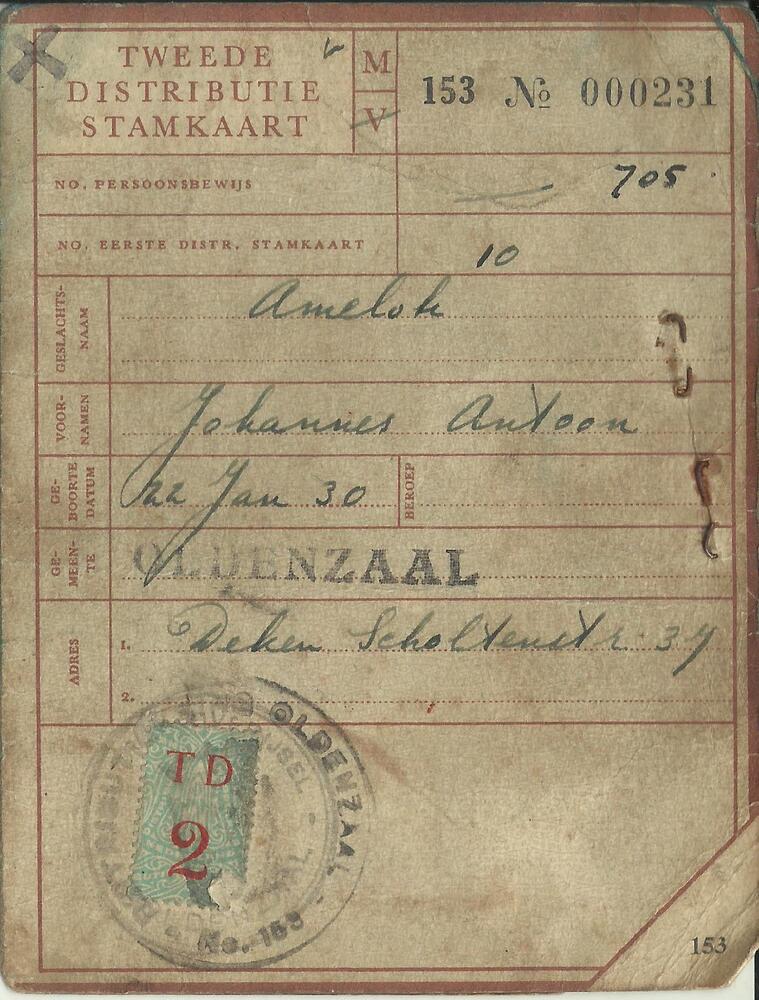 TWEEDE
DISTRIBUTIE
STAMKAART
M
V
153 № 000231
NO. PERSOONSBEWIJS
705
NO. EERSTE DISTR. STAMKAART
10
GESLACHTS-
NAAM
Amelok
VOOR-
NAMEN
Johannes Antoon
GE-
BOORTE
DATUM
22 Jan 30
BEROEP
GE-
MEEN-
TE
OLDENZAAL
ADRES
1. Deken Scholtenstr. 39
2.
OLDENZAAL
TD
2
No. 153
153